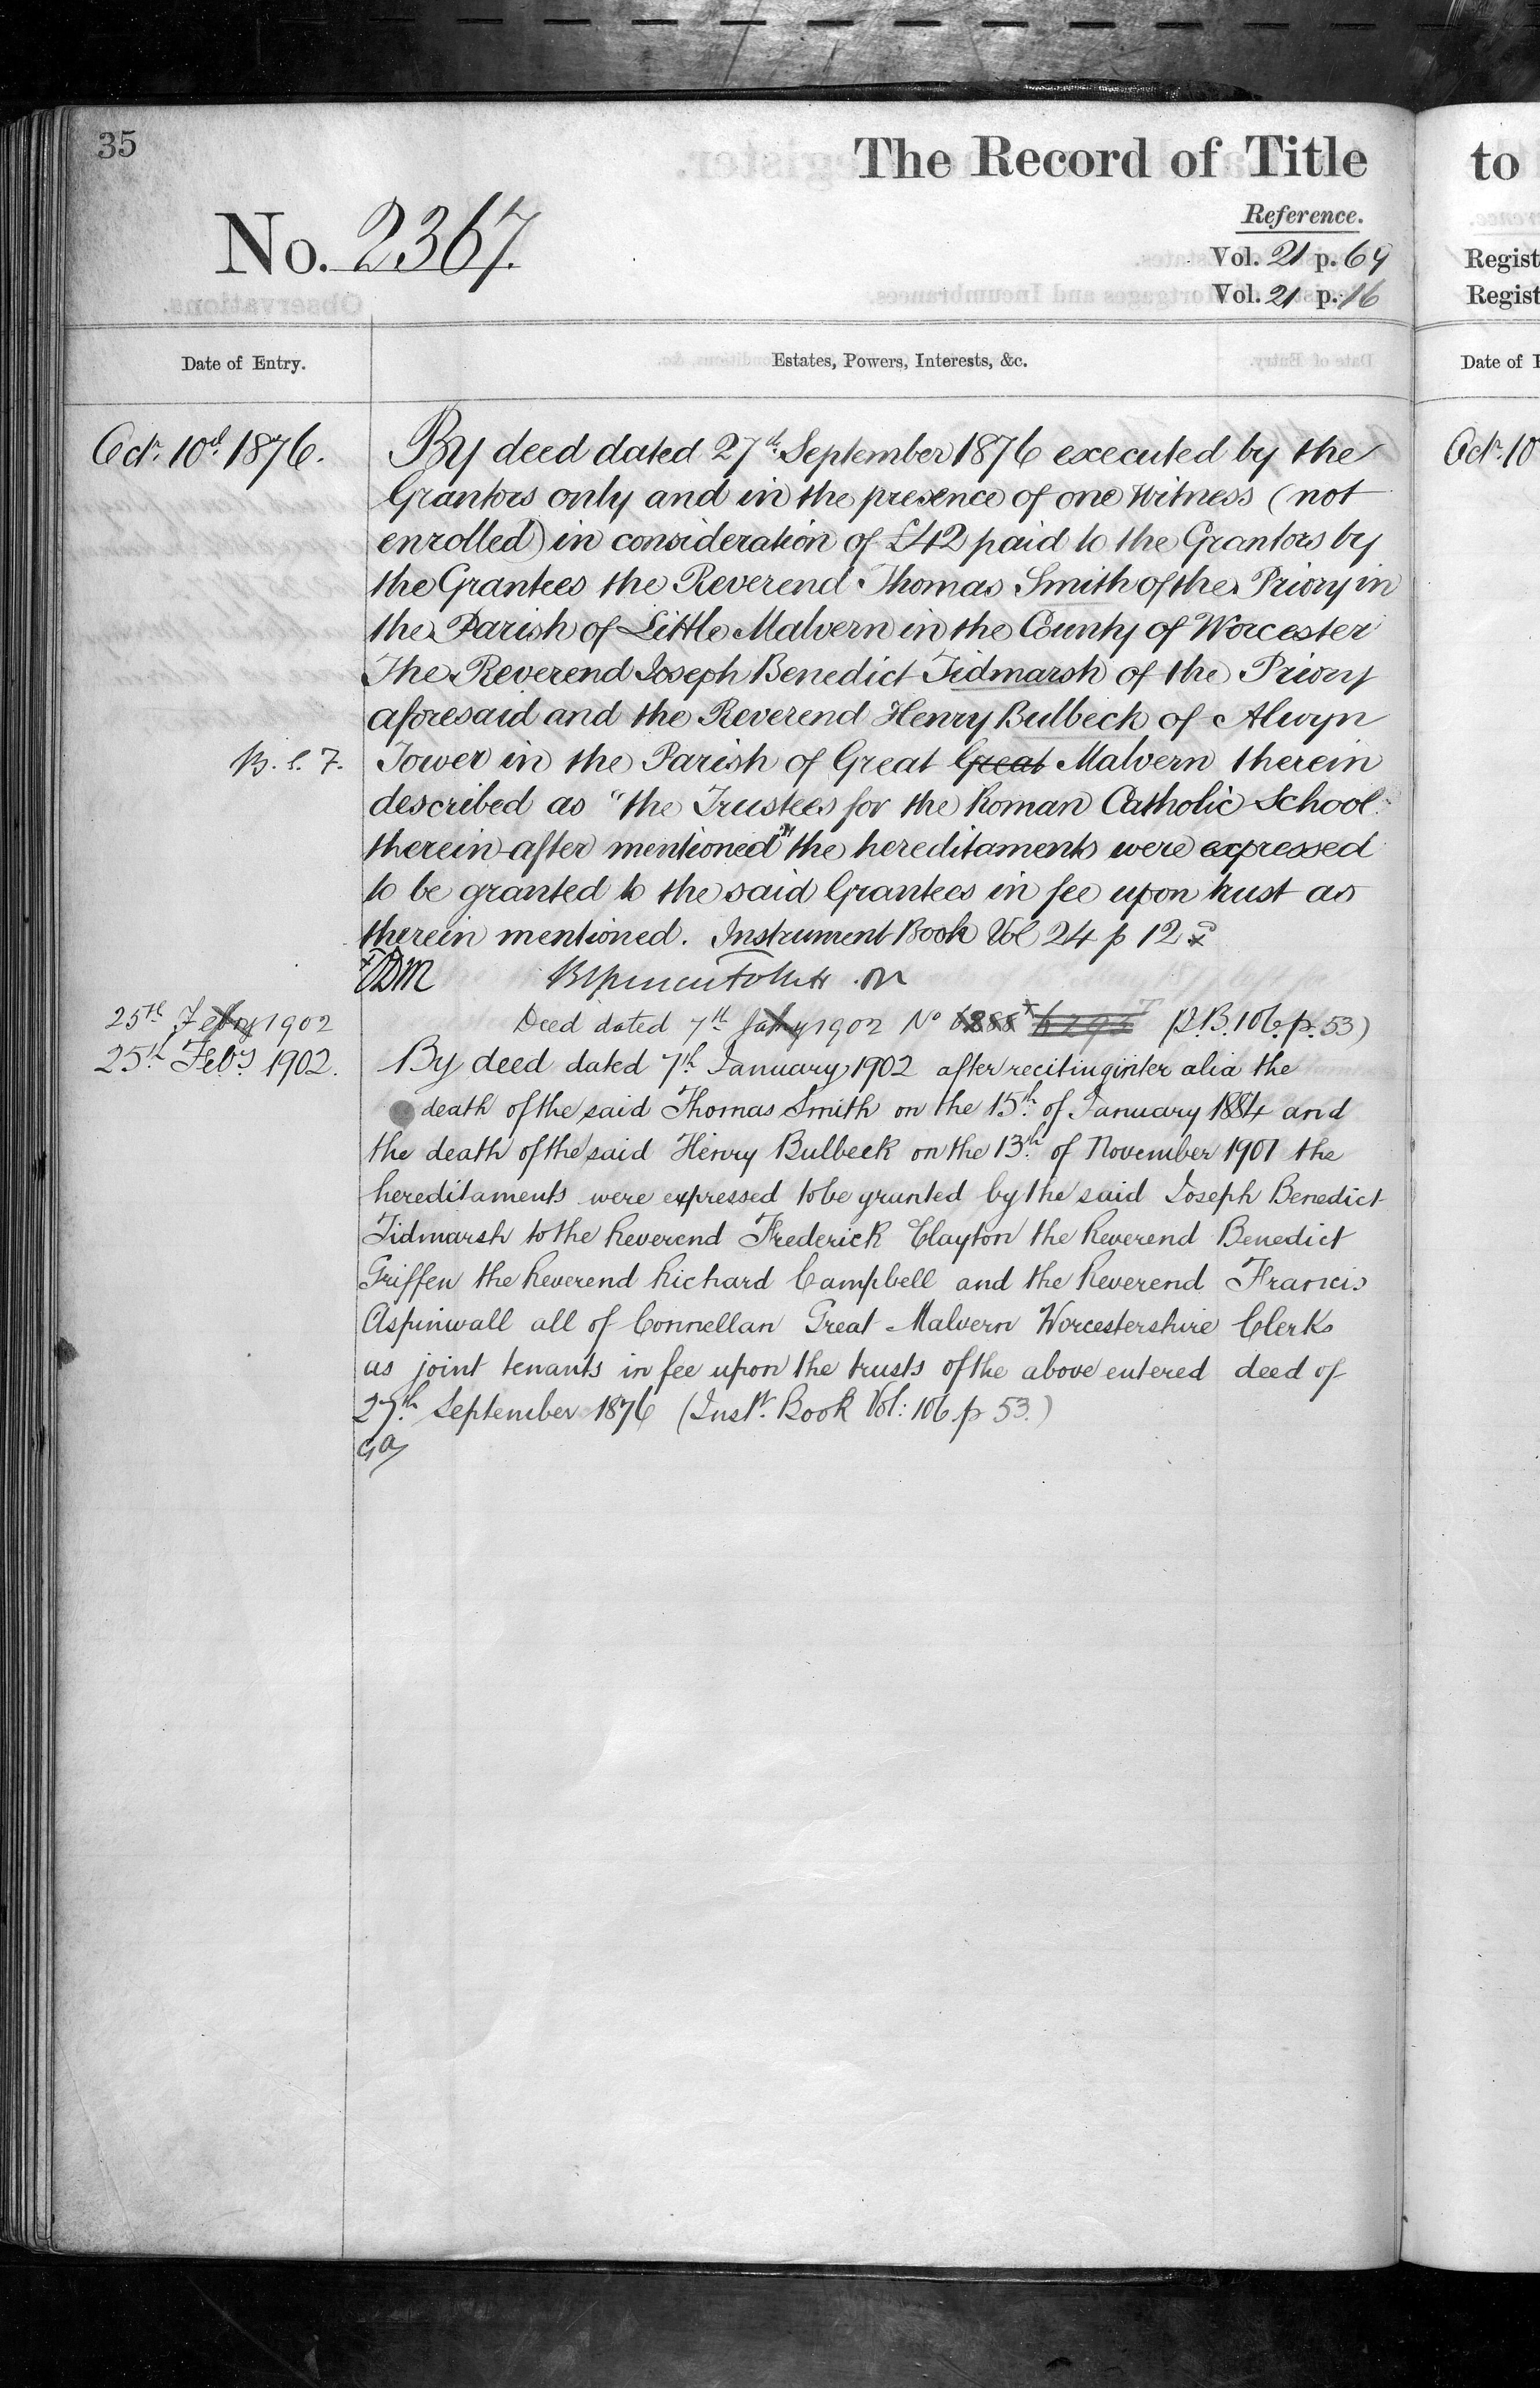 35
The Record of Title
to
No. 2367.
Reference.
Vol. 21 p. 69
Vol. 21 p. 16
Regist
Regist
Date of Entry.
Estates, Powers, Interests, &c.
Date of
Octr. 10th 1876.
By deed dated 27th September 1876 executed by the
Octr. 10
Grantors only and in the presence of one Witness (not
enrolled) in consideration of £42 paid to the Grantors by
the Grantees the Reverend Thomas Smith of the Priory in
the Parish of Little Malvern in the County of Worcester
The Reverend Joseph Benedict Tidmarsh of the Priory
aforesaid and the Reverend Henry Bulbeck of Alwyn
Tower in the Parish of Great Great Malvern therein
described as "the Trustees for the Roman Catholic School
therein after mentioned" the hereditaments were expressed
to be granted to the said Grantees in fee upon trust as
therein mentioned. Instrument Book Vol 24 p 12
25th Febry 1902
Deed dated 7th Jany 1902 No 6288 (I.B. 106. p. 53)
25th Feby 1902.
By deed dated 7th January 1902 after reciting inter alia the
death of the said Thomas Smith on the 15th of January 1884 and
the death of the said Henry Bulbeck on the 13th of November 1901 the
hereditaments were expressed to be granted by the said Joseph Benedict
Tidmarsh to the Reverend Frederick Clayton the Reverend Benedict
Griffen the Reverend Richard Campbell and the Reverend Francis
Aspinwall all of Connellan Great Malvern Worcestershire Clerks
as joint tenants in fee upon the trusts of the above entered deed of
27th September 1876 (Instt. Book Vol: 106 p 53.)